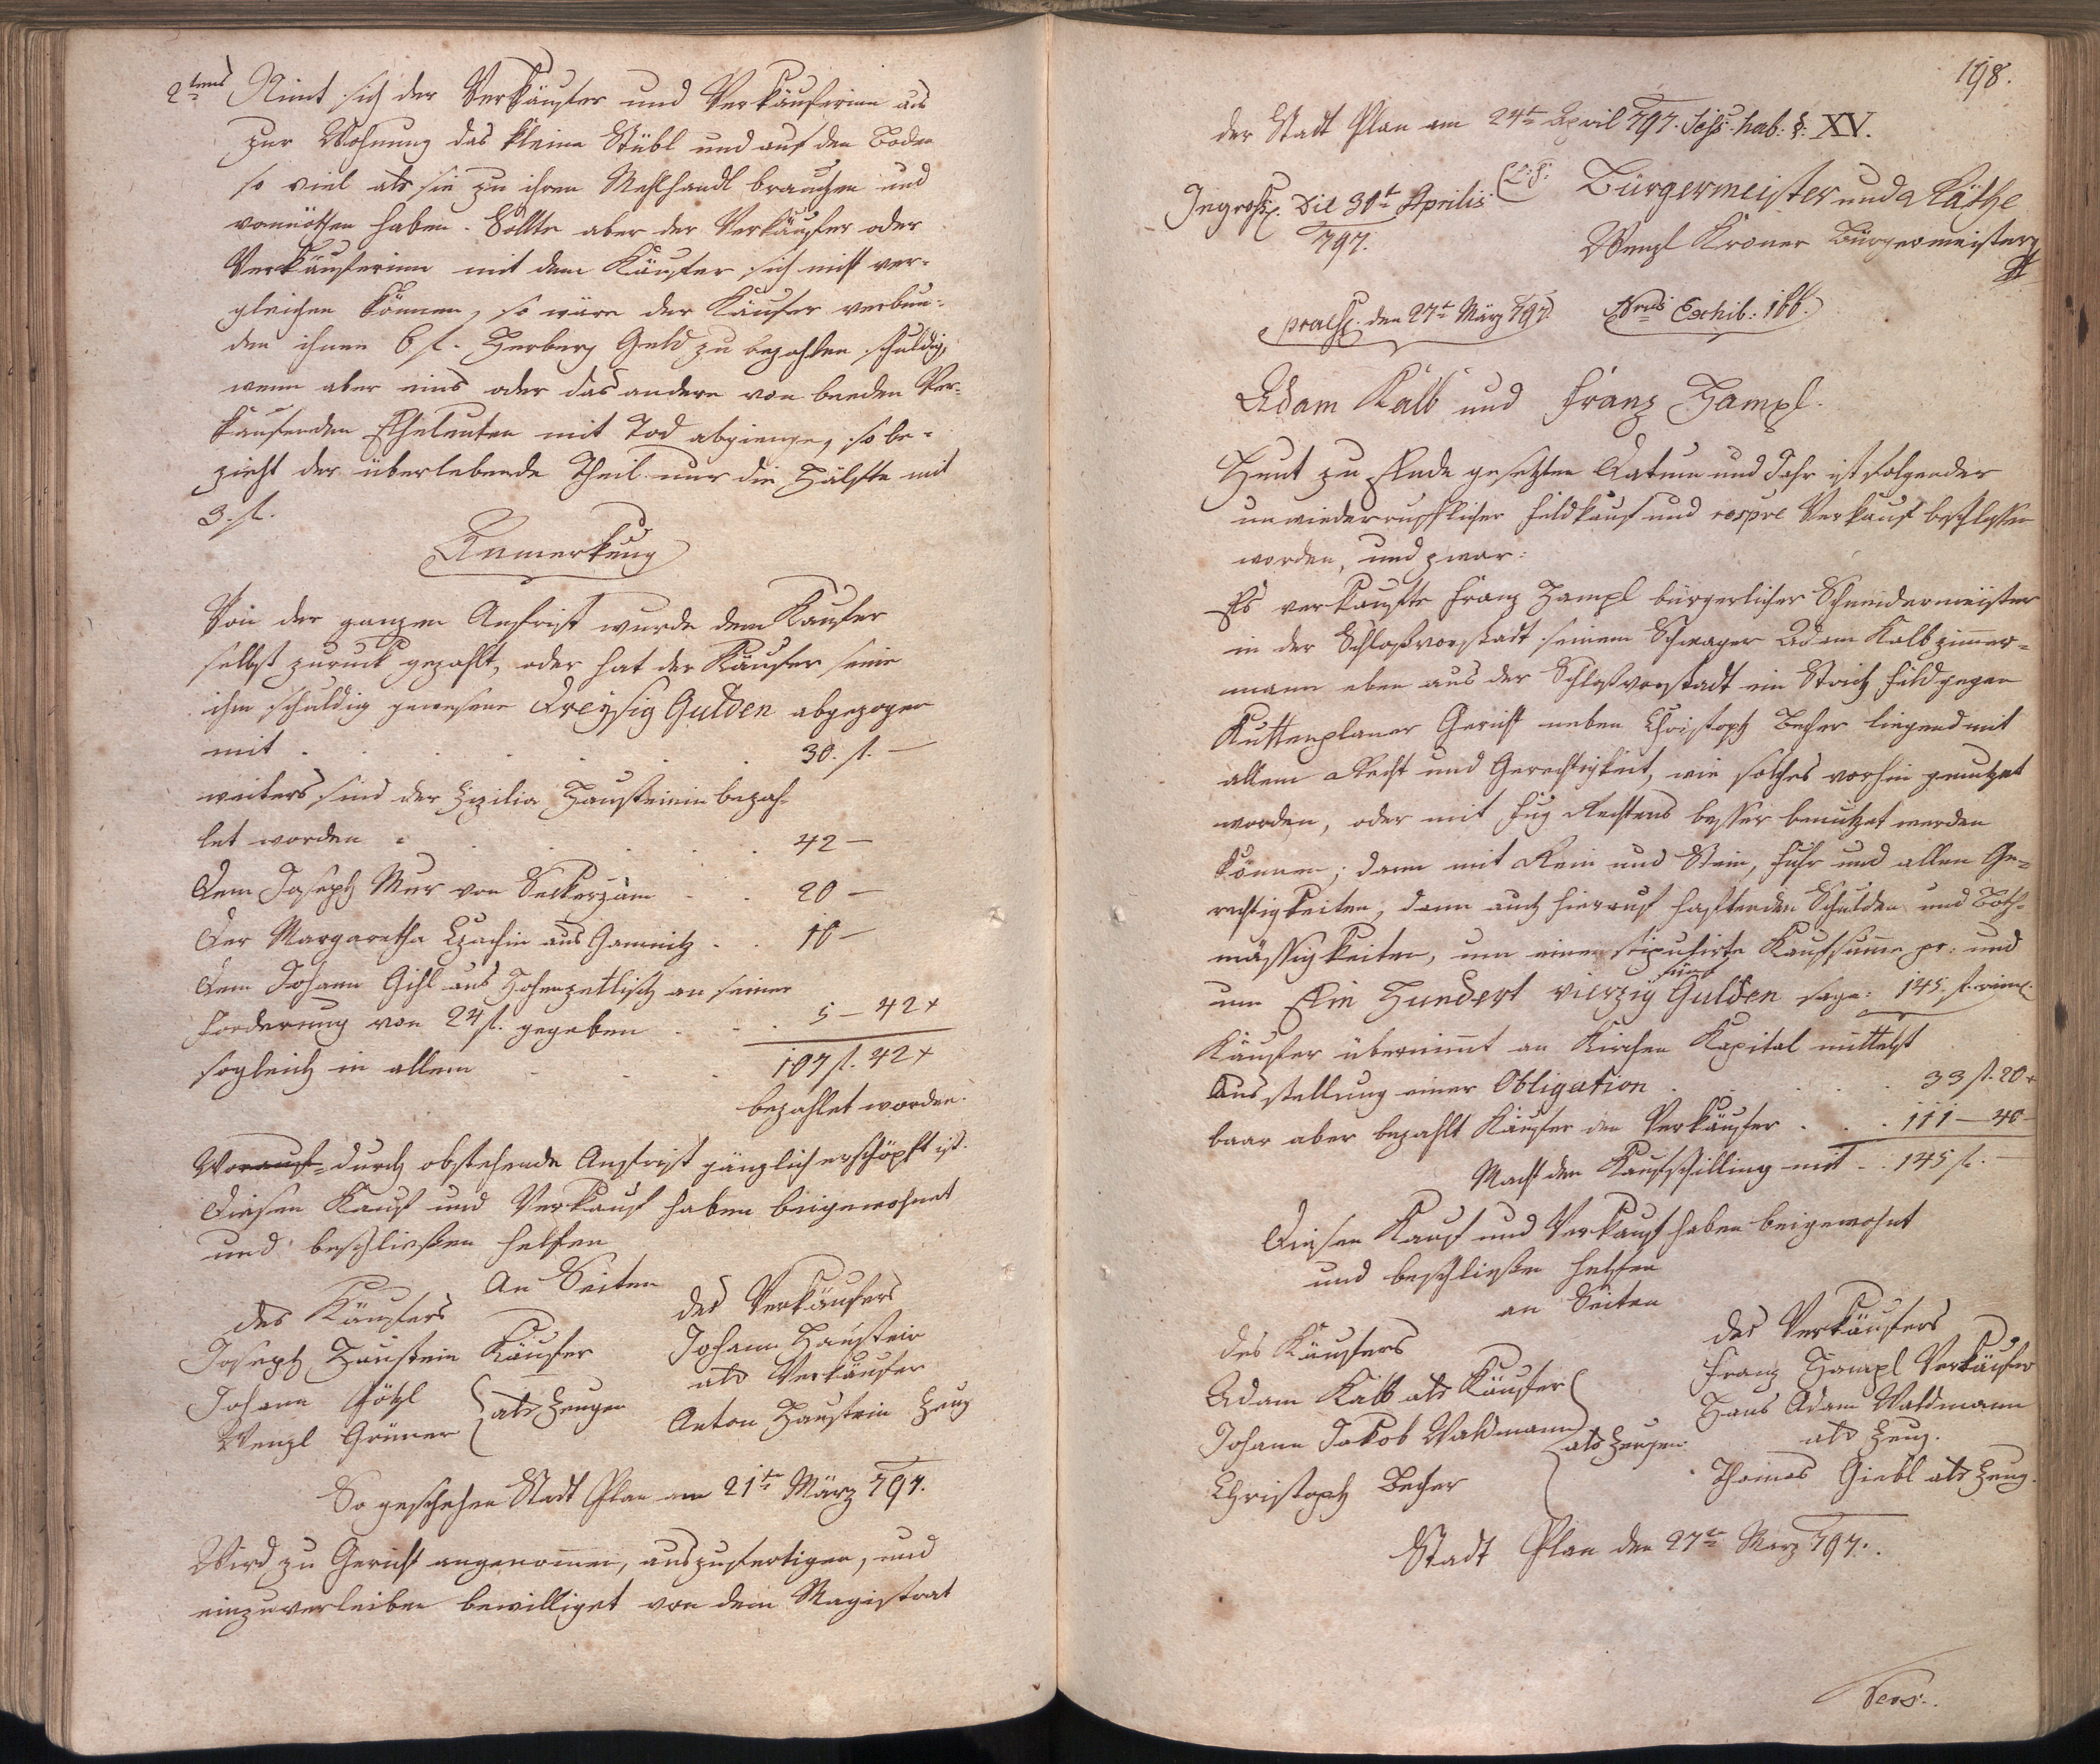 2tens Nimt sich der Verkäufer und Verkäuferinn aus
zur Wohnung das kleine Stübl und auf den Boden
so viel als sie zu ihren Mehlhandl brauchen und
vonnöthen haben. Sollte aber der Verkäufer oder
Verkäuferinn mit dem Käufer sich nicht ver-
gleichen können, so wäre der Käufer verbun-
den ihnen 6 f. Herberg Geld zu bezahlen schuldig,
wenn aber eins oder das andere von beeden Ver-
kaufenden Eheleuten mit Tod abgienge, so be-
zieht der überlebende Theil nur die Hälfte mit
3. f.
Anmerkung
Von der ganzen Anfrist wurde dem Kaufer
selbst zurück gezahlt, oder hat der Käufer seine
ihm schuldig gewesene Dreysig Gulden abgezogen
mit . . . . . 30. f. —
weiters sind der Hausteinin bezah-
let worden . . . . . 42 —
Dem Joseph Mur von . . 20 —
Der Margaretha aus Gamnitz . . 10 —
Dem Johann Gihl aus Hohenzetlisch an seiner
Forderung von 24 f. gegeben . . . 5 — 42 x
sogleich in allem . . . 107 f. 42 x
bezahlet worden.
Worauf durch obstehende Anfrist gänzlich erschöpft ist.
Diesen Kauf und Verkauf haben beigewohnet
und beschließen helfen
An Seiten
des Käufers
des Verkäufers
Joseph Haustein Käufer
Johann Haustein
als Verkäufer
Johann Götzl
Wenzl Grüner
als Zeugen
Anton Haustein Zeug
So geschehen Stadt Plan am 21te März 797.
Wird zu Gericht angenommen, auszufertigen, und
einzuverleiben bewilliget von dem Magistrat
198.
der Stadt Plan am 24te April 797. Sess. hab. §: XV.
Ingross. Die 30t Aprilis
797.
L: S:
Bürgermeister und Räthe
Wenzl Kroner Bürgermeister
praes. den 27t März 797.
Nrus Exhib: 166.
Adam Kalb und Franz Hampl.
Heut zu Ende gesetzten Datum und Jahr ist folgender
unwiederruflicher Feldkauf und respve Verkauf beschlossen
worden, und zwar:
Es verkaufte Franz Hampl bürgerlicher Schneidermeister
in der Schloßvorstadt seinem Schwager Adam Kalb zimmer-
mann eben aus der Schloßvorstadt ein Strich Feld gegen
Kuttenplaner Gericht neben Christoph Becher liegend mit
allem Recht und Gerechtigkeit, wie solches vorhin genutzet
worden, oder mit Fug Rechtens besser benutzet werden
können; dann mit Rein und Stein, Fuhr und allen Ge-
rechtigkeiten, dann auch hierauf haftenden Schulden und Both-
mäßigkeiten, um eine stipulirte Kaufsumme pr: und
um Ein Hundert vierzig fünf Gulden sage: 145 f. rhein.
Käufer übernimmt an Kirchen Kapital mittelst
Ausstellung einer Obligation . . . . 33 f. 20 x
baar aber bezahlt Käufer den Verkäufer . . . 111 — 40 —
Macht den Kaufschilling mit . . 145 f. —
Diesen Kauf und Verkauf haben beigewohnt
und beschließen helfen
an Seiten
des Käufers
des Verkäufers
Adam Kalb als Käufer
Franz Hampl Verkäufer
Johann Jakob Waldmann
Hans Adam Waldmann
als Zeugen
als Zeug.
Christoph Becher
Thomas Giebl als Zeug.
Stadt Plan den 27te März 797.